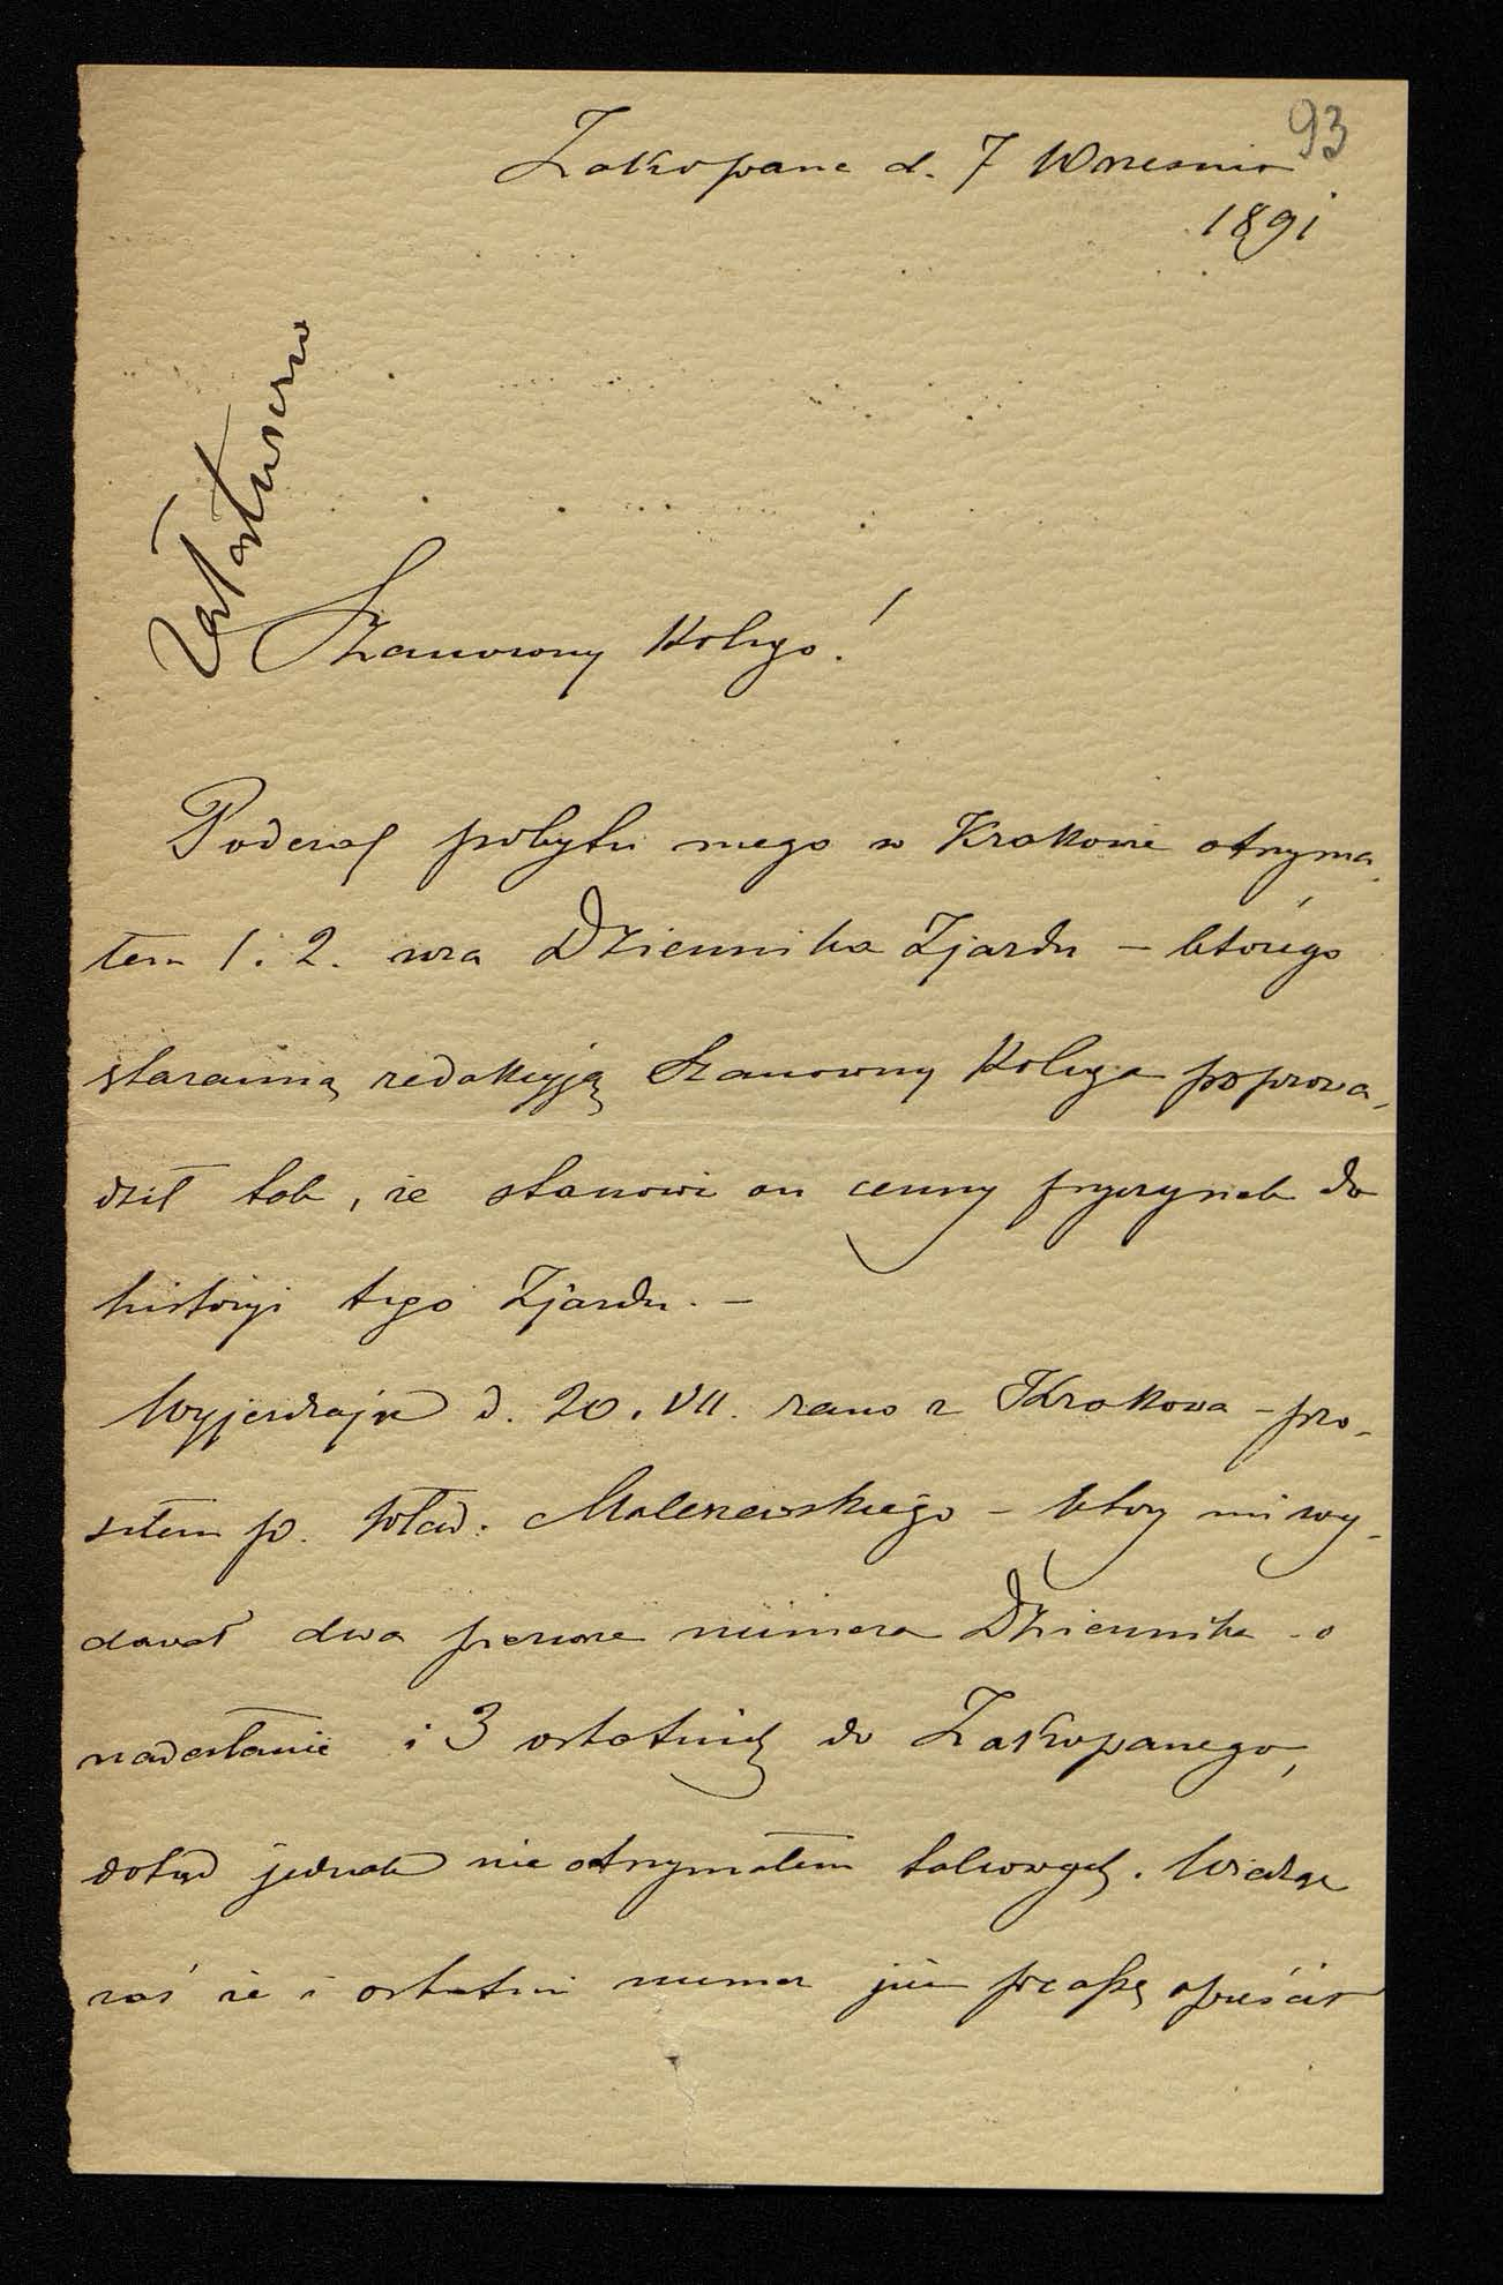 93
Zakopane d. 7 Wrzesnia
1891
Załatwiono
Szanowny Kolego!
Podczas pobytu mego w Krakowie otrzyma-
łem 1. 2. nra Dziennika Zjazdu – którego
staranną redakcyją Szanowny Kolega poprowa-
dził tak, że stanowi on cenny przyczynek do
historyi tego Zjazdu. –
Wyjeżdżając d. 20. VII. rano z Krakowa – pro-
siłem p. Wład. Maleszewskiego – który mi wy-
dawał dwa pierwsze numera Dziennika – o
nadesłanie i 3 ostatnich do Zakopanego,
dotąd jednak nie otrzymałem takowych. Widząc
zaś że i ostatni numer już prasę opuścił